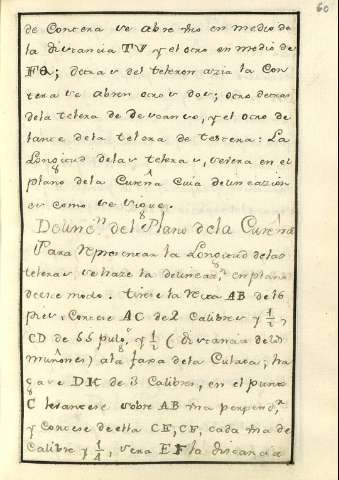 60
de Contera se abre uno en medio de
la distancia TV y el otro en medio de
FQ; detras del teleron azia la Con
tera se abren otros dos; otro detras
dela telera de Descanso, y el otro de
lante dela telera de testera: La
Longitud delas teleras, se vera en el
plano dela Cureña cuia delineazion
es como se sigue.
Delinon. del Plano dela Cureña
Para representar la Longitud delas
teleras, se haze la delineazn. en plano
deeste modo. tirese la recta AB de 16
pies, Cortese AC de 2 Calibres y 1/2,
CD de 55 pulgs. y 1/2 (distancia delos
muñones) ala faxa dela Culata; ha
gase DK de 3 Calibres, en el punto
C levantese sobre AB una perpendr.
y Cortese de ella CE, CF, cada una de
Calibre y 1/4, sera EF la distancia